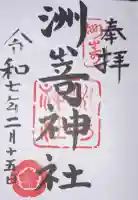 奉拝
洲嵜神社
令和七年二月十五日